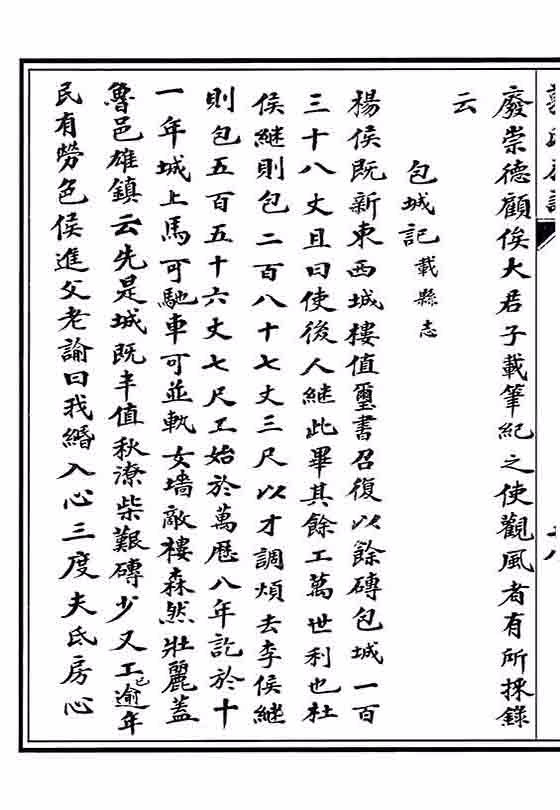 廢崇德顧俟大君子載筆紀之使觀風者有所採錄
云
包城記載縣志
楊侯既新東西城樓值璽書召復以餘磚包城一百
三十八丈且曰使後人継此畢其餘工萬世利也杜
侯継則包二百八十七丈三尺以才調煩去李侯継
則包五百五十六丈七尺工始於萬曆八年訖於十
一年城上馬可馳車可並軌女墻敵樓森然壯麗蓋
魯邑雄鎮云先是城既丰值秋潦柴艱磚少又工已逾年
民有勞色侯進父老諭曰我緡入心三度夫氐房心